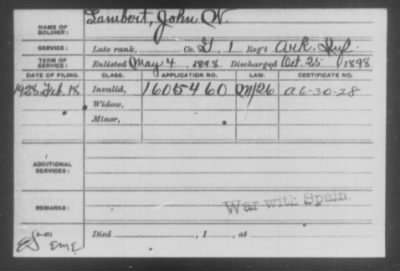 NAME OF SOLDIER: Lambert, John W.
SERVICE: Late rank, Co. G, 1 Reg't Ark. Inf.
TERM OF SERVICE: Enlisted May 4, 1898 Discharged Oct. 25, 1898
DATE OF FILING. CLASS. APPLICATION NO. LAW. CERTIFICATE NO.
1928 Feb. 18 Invalid, 1605460 M/26 a 6-30-28
Widow,
Minor,
ADDITIONAL SERVICES:
REMARKS: War with Spain.
EME Died , 1 , at